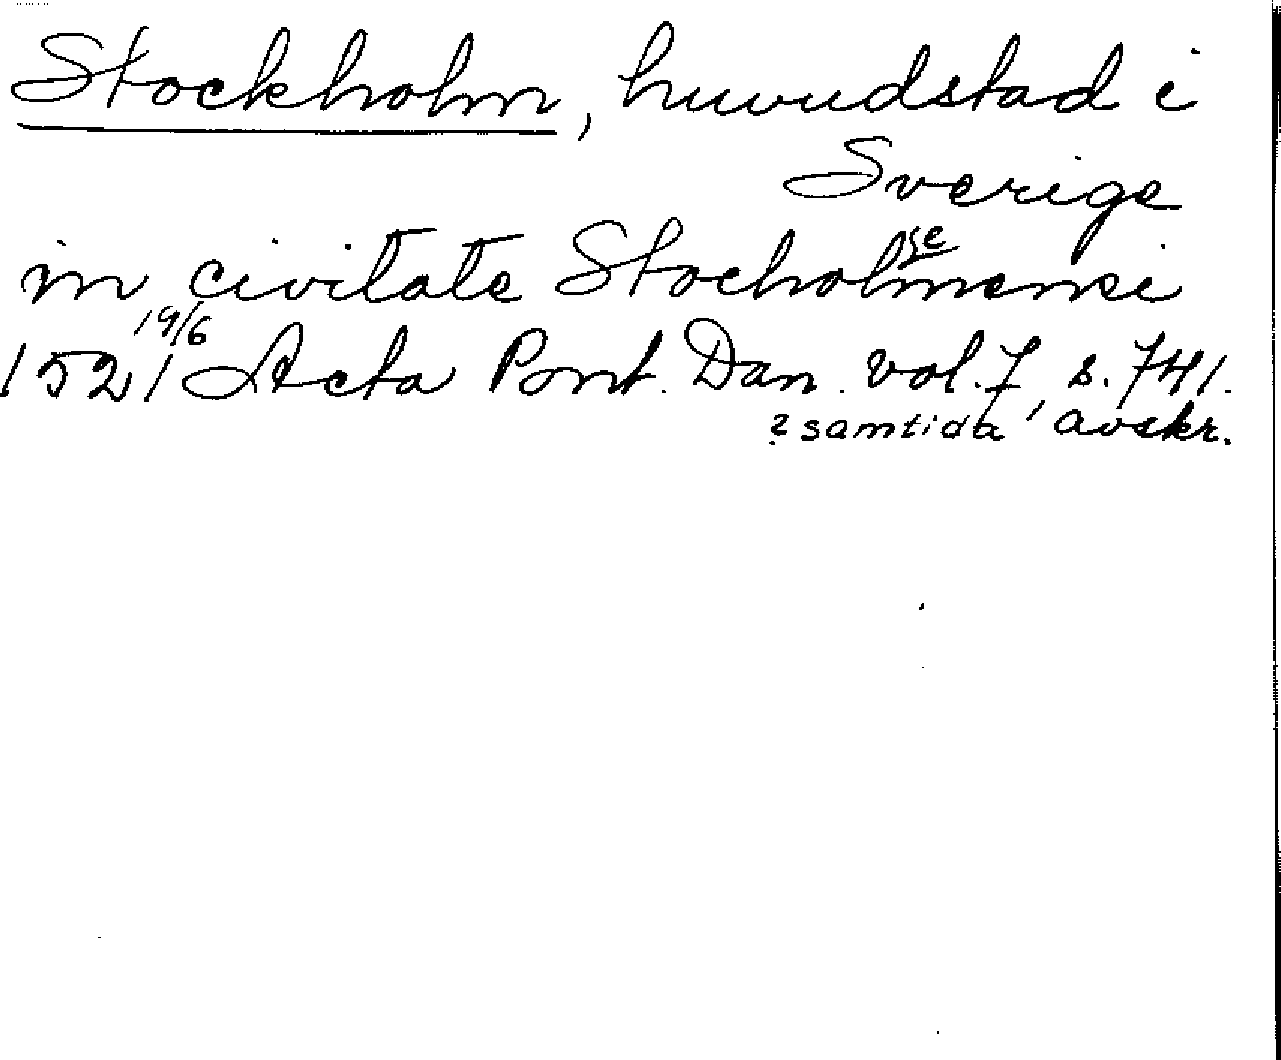 Stockholm, huvudstad i
Sverige
in civitate Stocholmensi
1521 19/6 Acta Pont. Dan. vol. 7, s. 741.
? samtida avskr.